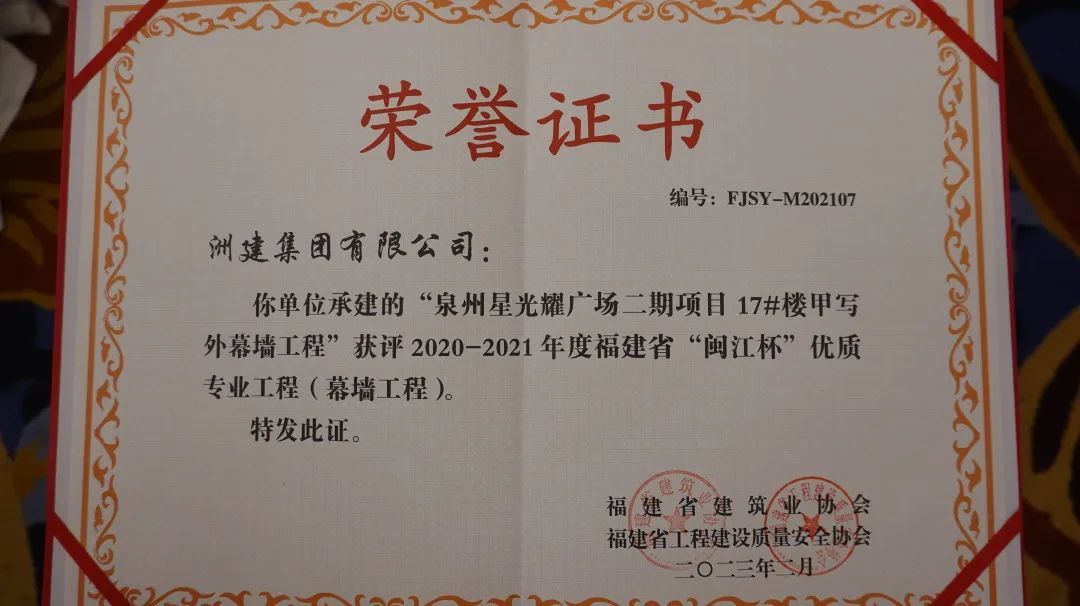 荣誉证书
编号：FJSY-M202107
洲建集团有限公司：
你单位承建的“泉州星光耀广场二期项目17#楼甲写
外幕墙工程”获评2020-2021年度福建省“闽江杯”优质
专业工程（幕墙工程）。
特发此证。
福建省建筑业协会
福建省工程建设质量安全协会
二〇二三年二月